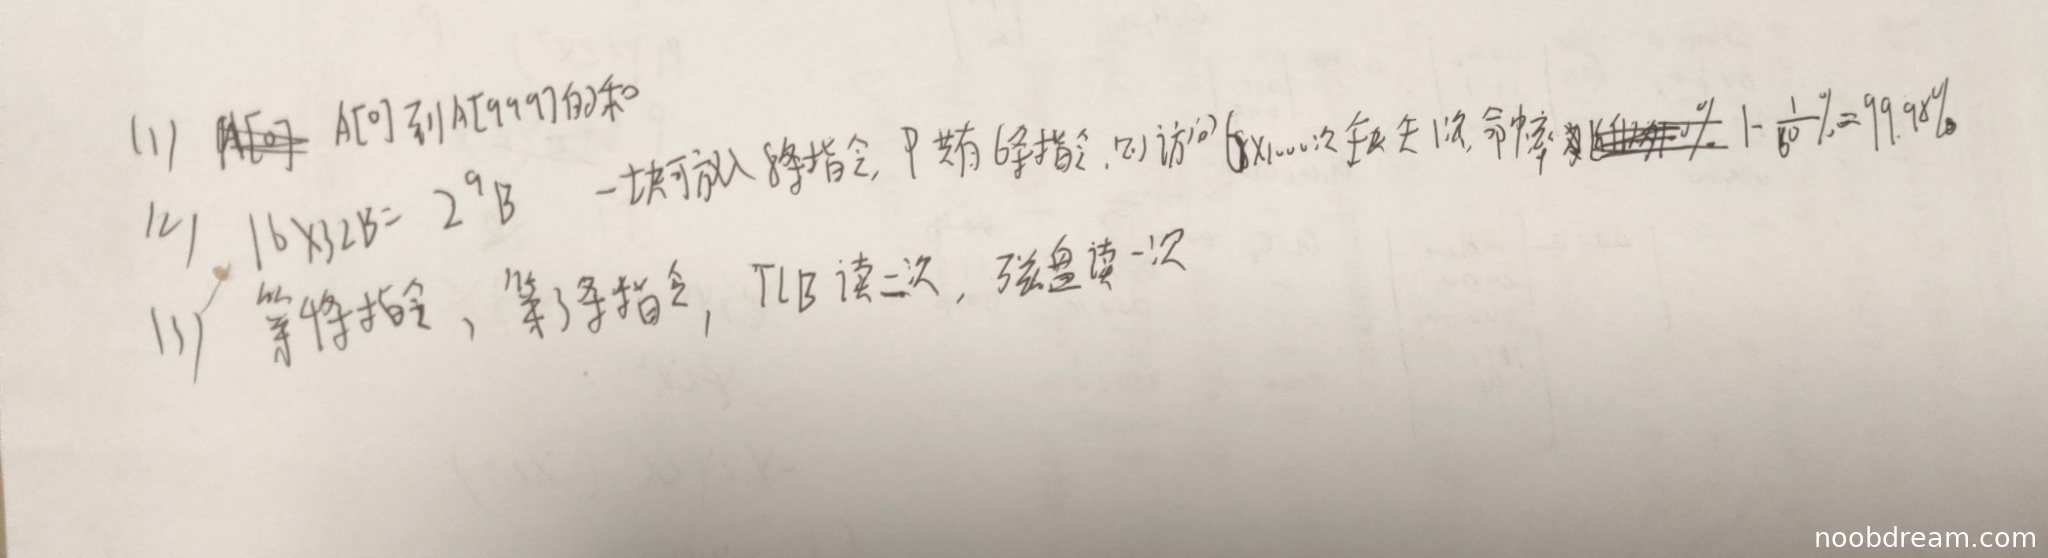 (1) A[0] A[0]到A[999]的和
(2) 16×32B= 2⁹B 一块可放入8条指令, P共有6条指令, 则访问6×1000次 缺失1次, 命中率 % 1-1/60%=99.98%
(3) 第4条指令, 第3条指令, TLB读二次, 磁盘读一次
noobdream.com